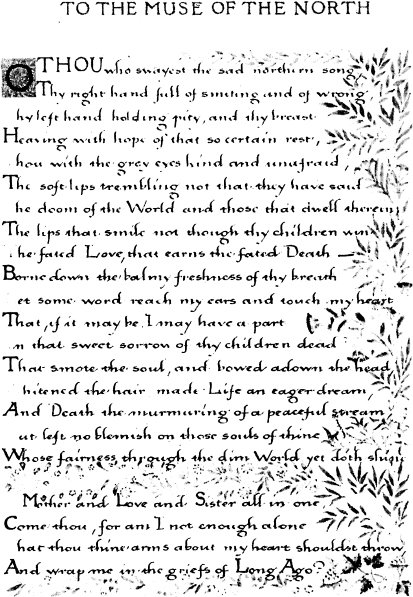 TO THE MUSE OF THE NORTH
O THOU who swayest the sad northern song,
Thy right hand full of smiting and of wrong
hy left hand holding pity, and thy breast
Heaving with hope of that so certain rest,
hou with the grey eyes kind and unafraid,
The soft lips trembling not that they have said
he doom of the World and those that dwell therein
The lips that smile not though thy children win
he fated Love, that earns the fated Death —
Borne down the balmy freshness of thy breath
et some word reach my ears and touch my heart
That, if it may be, I may have a part
n that sweet sorrow of thy children dead
That smote the soul, and bowed adown the head
hitened the hair made Life an eager dream,
And Death the murmuring of a peaceful stream
ut left no blemish on those souls of thine
Whose fairness through the dim World yet doth shine
Mother and Love and Sister all in one
Come thou, for am I not enough alone
hat thou thine arms about my heart shouldst throw
And wrap me in the griefs of Long Ago?